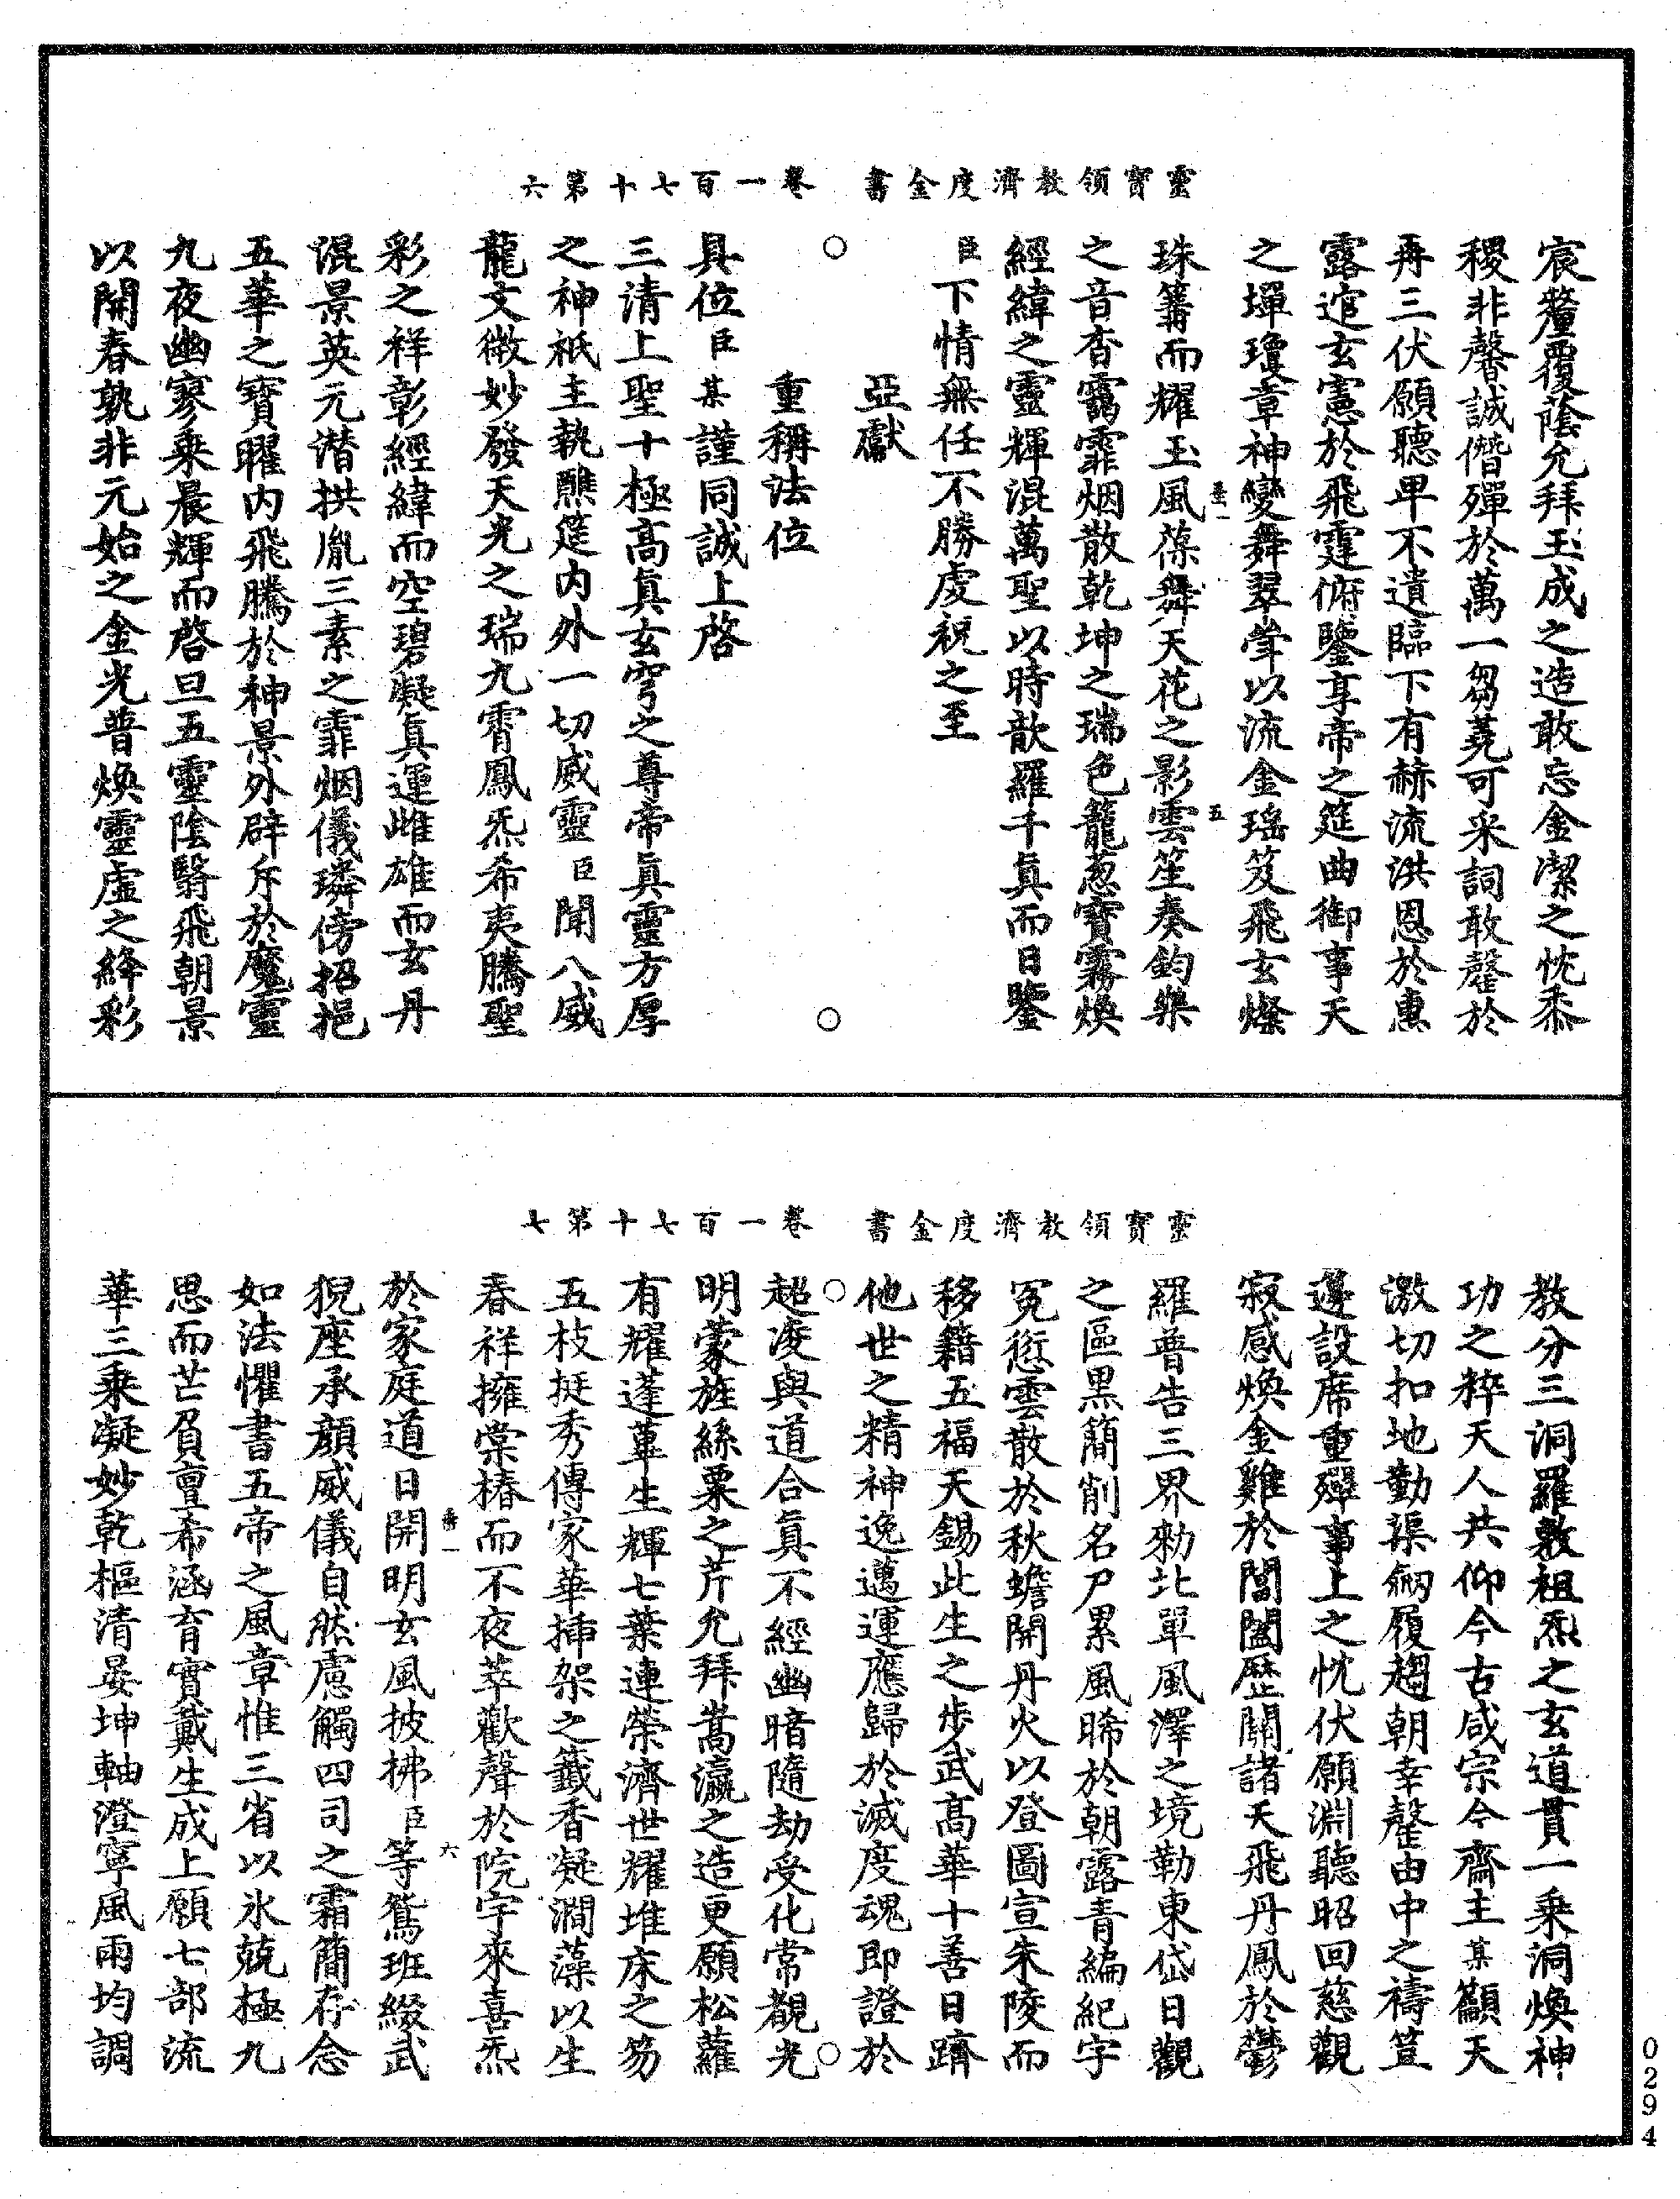 靈寶領教濟度金書　卷一百七十第六
宸釐覆蔭允拜玉成之造敢忘金潔之忱黍
稷非馨誠僭殫於萬一芻蕘可采詞敢罄於
再三伏願聽卑不遺臨下有赫流洪恩於惠
露逭玄憲於飛霆俯鑒享帝之筵曲御事天
之墠瓊章神變舞翠峯以流金瑤笈飛玄燦
珠籌而耀玉風葆舞天花之影雲笙奏鈞樂
之音杳靄霏烟散乾坤之瑞色籠葱寶霧煥
經緯之靈輝混萬聖以時歆羅千真而日鑒
臣下情無任不勝虔祝之至
亞獻
重稱法位
具位臣某謹同誠上啓
三清上聖十極高真玄穹之尊帝真靈方厚
之神祇主執醮筵內外一切威靈臣聞八威
龍文微妙發天光之瑞九霄鳳炁希夷騰聖
彩之祥彰經緯而空碧凝真運雌雄而玄丹
混景英元潛拱胤三素之霏烟儀璘傍招挹
五華之寶曜內飛騰於神景外辟斥於魔靈
九夜幽寥乘晨輝而啓旦五靈陰翳飛朝景
以開春孰非元始之金光普煥靈虛之絳彩
靈寶領教濟度金書　卷一百七十第七
教分三洞羅敷祖炁之玄道貫一乘洞煥神
功之粹天人共仰今古咸宗今齋主某籲天
激切扣地勤渠劒履趨朝幸罄由中之禱豆
籩設席重殫事上之忱伏願淵聽昭回慈觀
寂感煥金雞於閶闔歷關諸天飛丹鳳於鬱
羅普告三界勑北單風澤之境勒東岱日觀
之區黑簡削名尸累風晞於朝露青編紀字
冤愆雲散於秋蟾開丹火以登圖宣朱陵而
移籍五福天錫此生之步武高華十善日躋
他世之精神逸邁運應歸於滅度魂即證於
超凌與道合真不經幽暗隨劫受化常覩光
明蒙旌絲粟之芹允拜嵩瀛之造更願松蘿
有耀蓬蓽生輝七葉連榮濟世耀堆床之笏
五枝挺秀傳家華插架之籤香凝澗藻以生
春祥擁棠椿而不夜萃歡聲於院宇來喜炁
於家庭道日開明玄風披拂臣等鴛班綴武
猊座承顏威儀自然慮觸四司之霜簡存念
如法懼書五帝之風章惟三省以氷兢極九
思而芒負亶希涵育實戴生成上願七部流
華三乘凝妙乾樞清晏坤軸澄寧風雨均調
0294